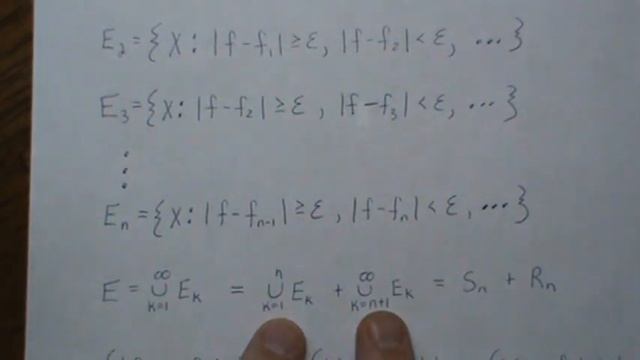 E₂ = {x: |f-f₁| ≥ ε, |f-f₂| < ε, ...}
E₃ = {x: |f-f₂| ≥ ε, |f-f₃| < ε, ...}
⋮
Eₙ = {x: |f-fₙ₋₁| ≥ ε, |f-fₙ| < ε, ...}
E = ∪_{k=1}^{∞} E_k = ∪_{k=1}^{n} E_k + ∪_{k=n+1}^{∞} E_k = Sₙ + Rₙ